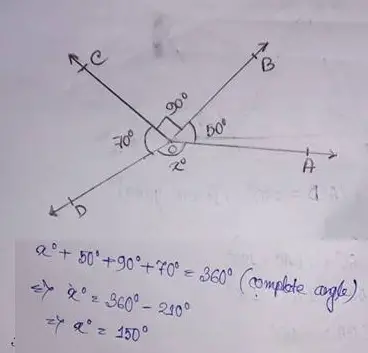 C
B
90°
70°
50°
O
x°
A
D
x° + 50° + 90° + 70° = 360° (complete angle)
=> x° = 360° - 210°
=> x° = 150°